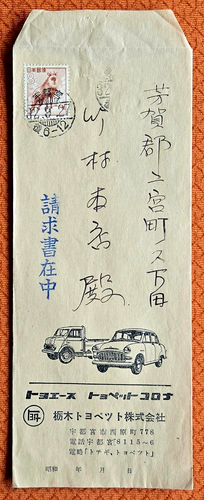 芳賀郡二宮町久下田
村本店殿
請求書在中
日本郵便
トヨエース トヨペットコロナ
栃木トヨペツト株式会社
宇都宮市西原町778
電話宇都宮8115~6
電略「トチギ、トヨペツト」
昭和 年 月 日